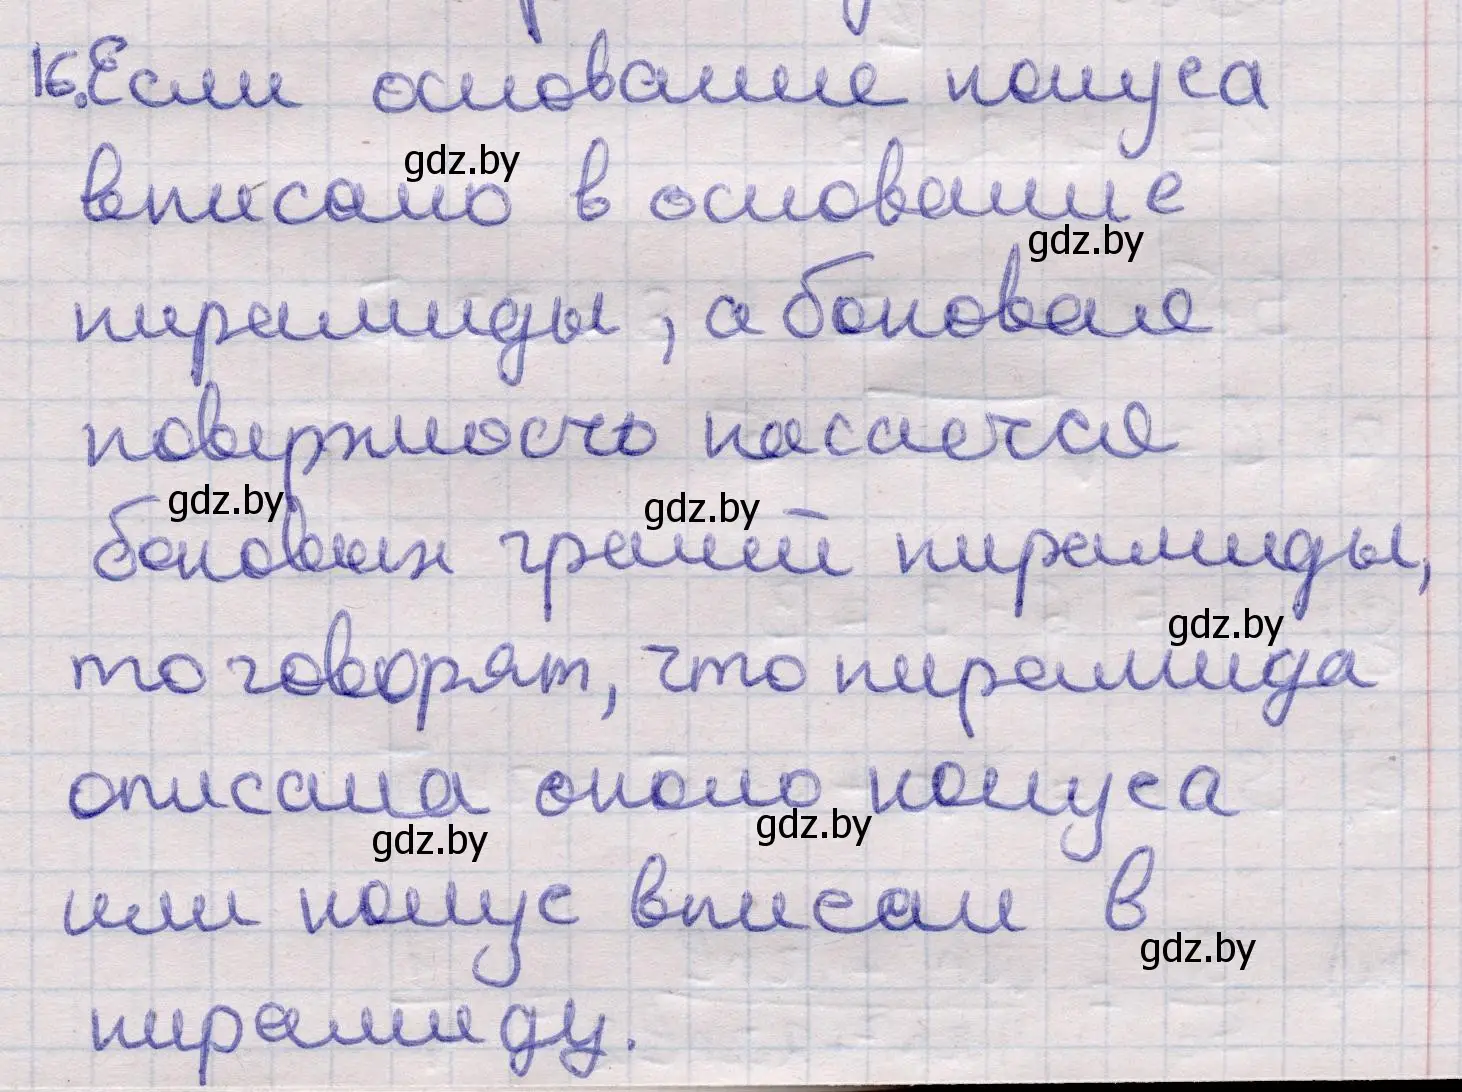 16. Если основание конуса
вписано в основание
пирамиды, а боковая
поверхность касается
боковых граней пирамиды,
то говорят, что пирамида
описана около конуса
или конус вписан в
пирамиду.
gdz.by
gdz.by
gdz.by
gdz.by
gdz.by
gdz.by
gdz.by
gdz.by